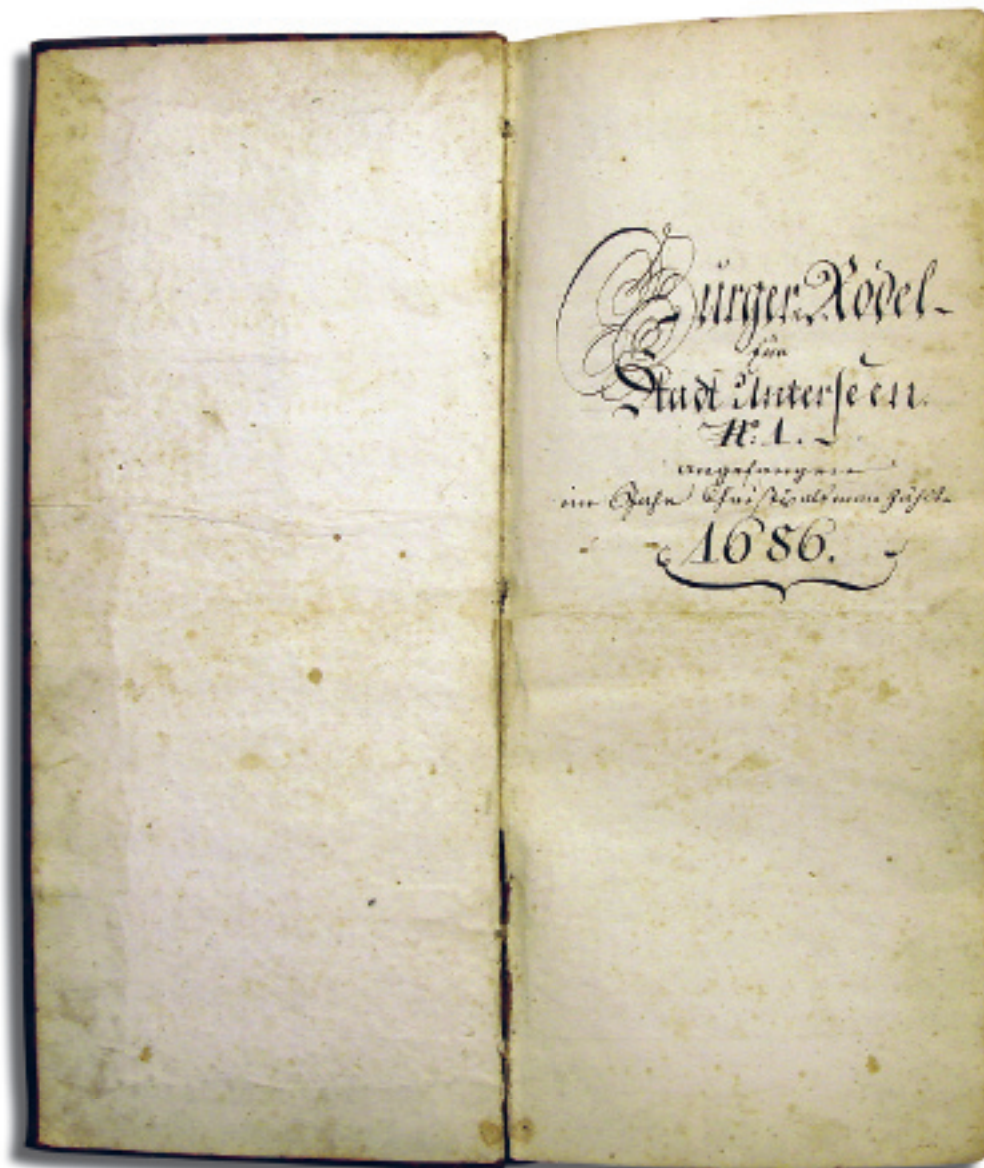 Burger Rödel.
für
Stadt Unterseen.
N.º 1.
angefangen
im Jahr Christi als man zählt.
1686.